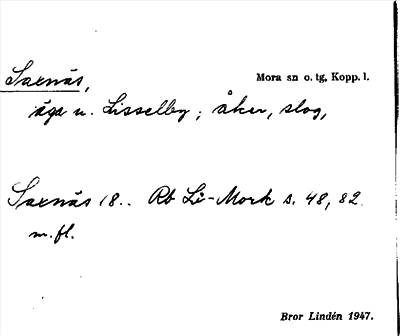 Saxnäs,
Mora sn o. tg, Kopp. l.
äga u. Lisselby; åker, slog,
Saxnäs 18.. Rb Li-Mork s. 48, 82
m.fl.
Bror Lindén 1947.